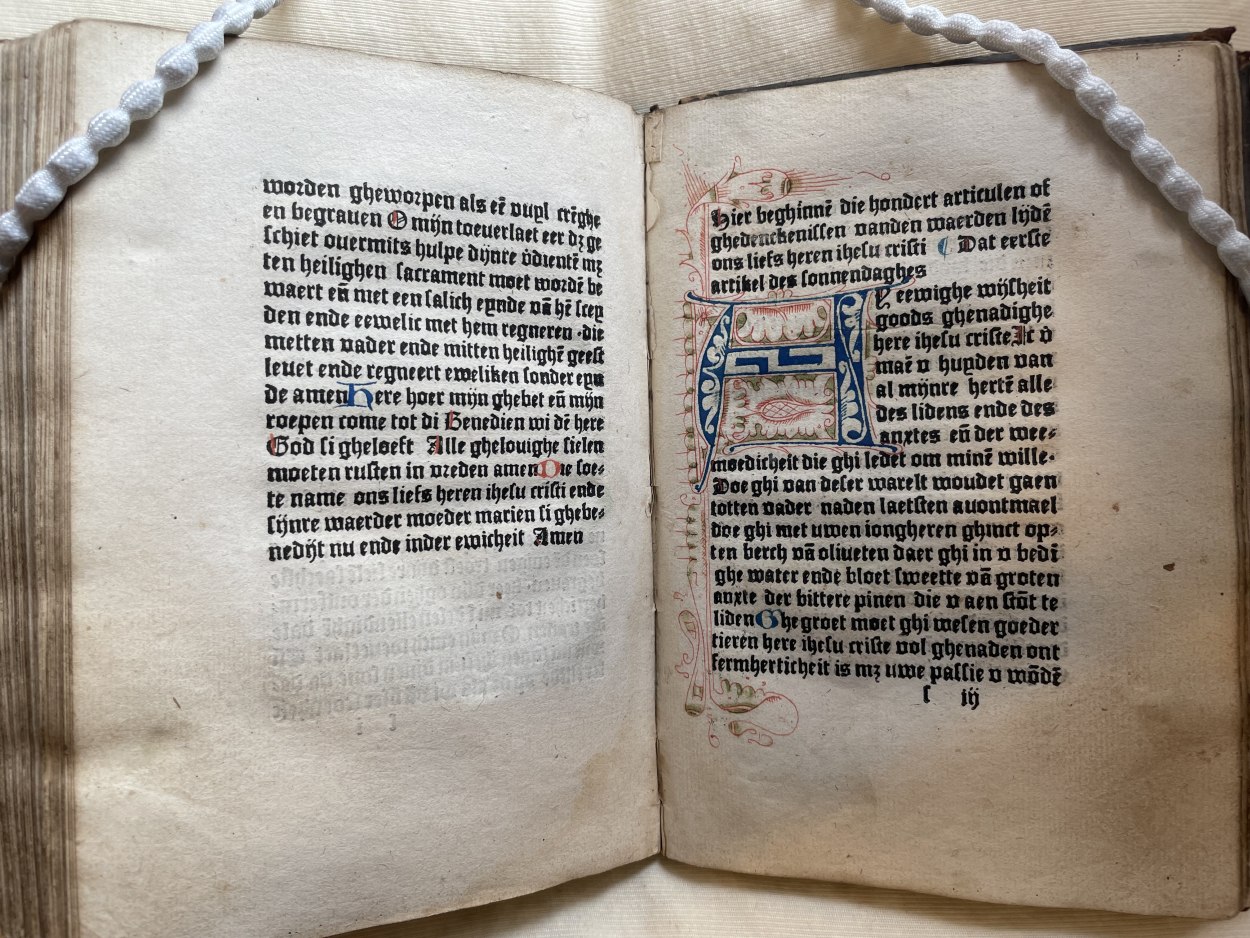 worden gheworpen als eē vuyl crēghe
en begrauen O mijn toeuerlaet eer dʒ ge
schiet ouermits hulpe dijnre ōdientē mʒ
ten heilighen sacrament moet wordē be
waert eñ met een salich eynde vā hē scey
den ende eewelic met hem regneren ·die
metten vader ende mitten heilighē geest
leuet ende regneert eweliken sonder eyn
de amen here hoer mijn ghebet eñ mijn
roepen come tot di Benedien wi dē here
God si gheloeft Alle ghelouighe sielen
moeten rusten in vreden amen Die soe⸗
te name ons liefs heren ihesu cristi ende
sijnre waerder moeder marien si ghebe⸗
nedijt nu ende inder ewicheit Amen
Hier beghinnē die hondert articulen of
ghedenckenissen vanden waerden lijdē
ons liefs heren ihesu cristi ⸿ Dat eerste
artikel des sonnendaghes
AY eewighe wijsheit
goods ghenadighe
here ihesu criste Ic v
maē v huyden van
al mijnre hertē alle
des lidens ende des
anxtes eñ der wee⸗
moedicheit die ghi ledet om minē wille·
Doe ghi van deser warelt woudet gaen
totten vader naden laetsten auontmael
doe ghi met uwen iongheren ghinct op⸗
ten berch vā oliueten daer ghi in v bedī
ghe water ende bloet sweette vā groten
anxte der bittere pinen die v aen stōt te
liden Ghegroet moet ghi wesen goeder
tieren here ihesu criste vol ghenaden ont
fermherticheit is mʒ uwe passie v wōdē
s iij